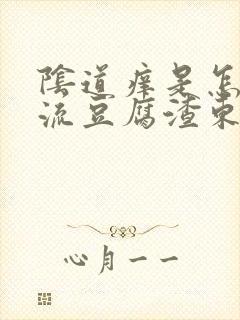 陰道痒是怎
流豆腐渣東
心月一一